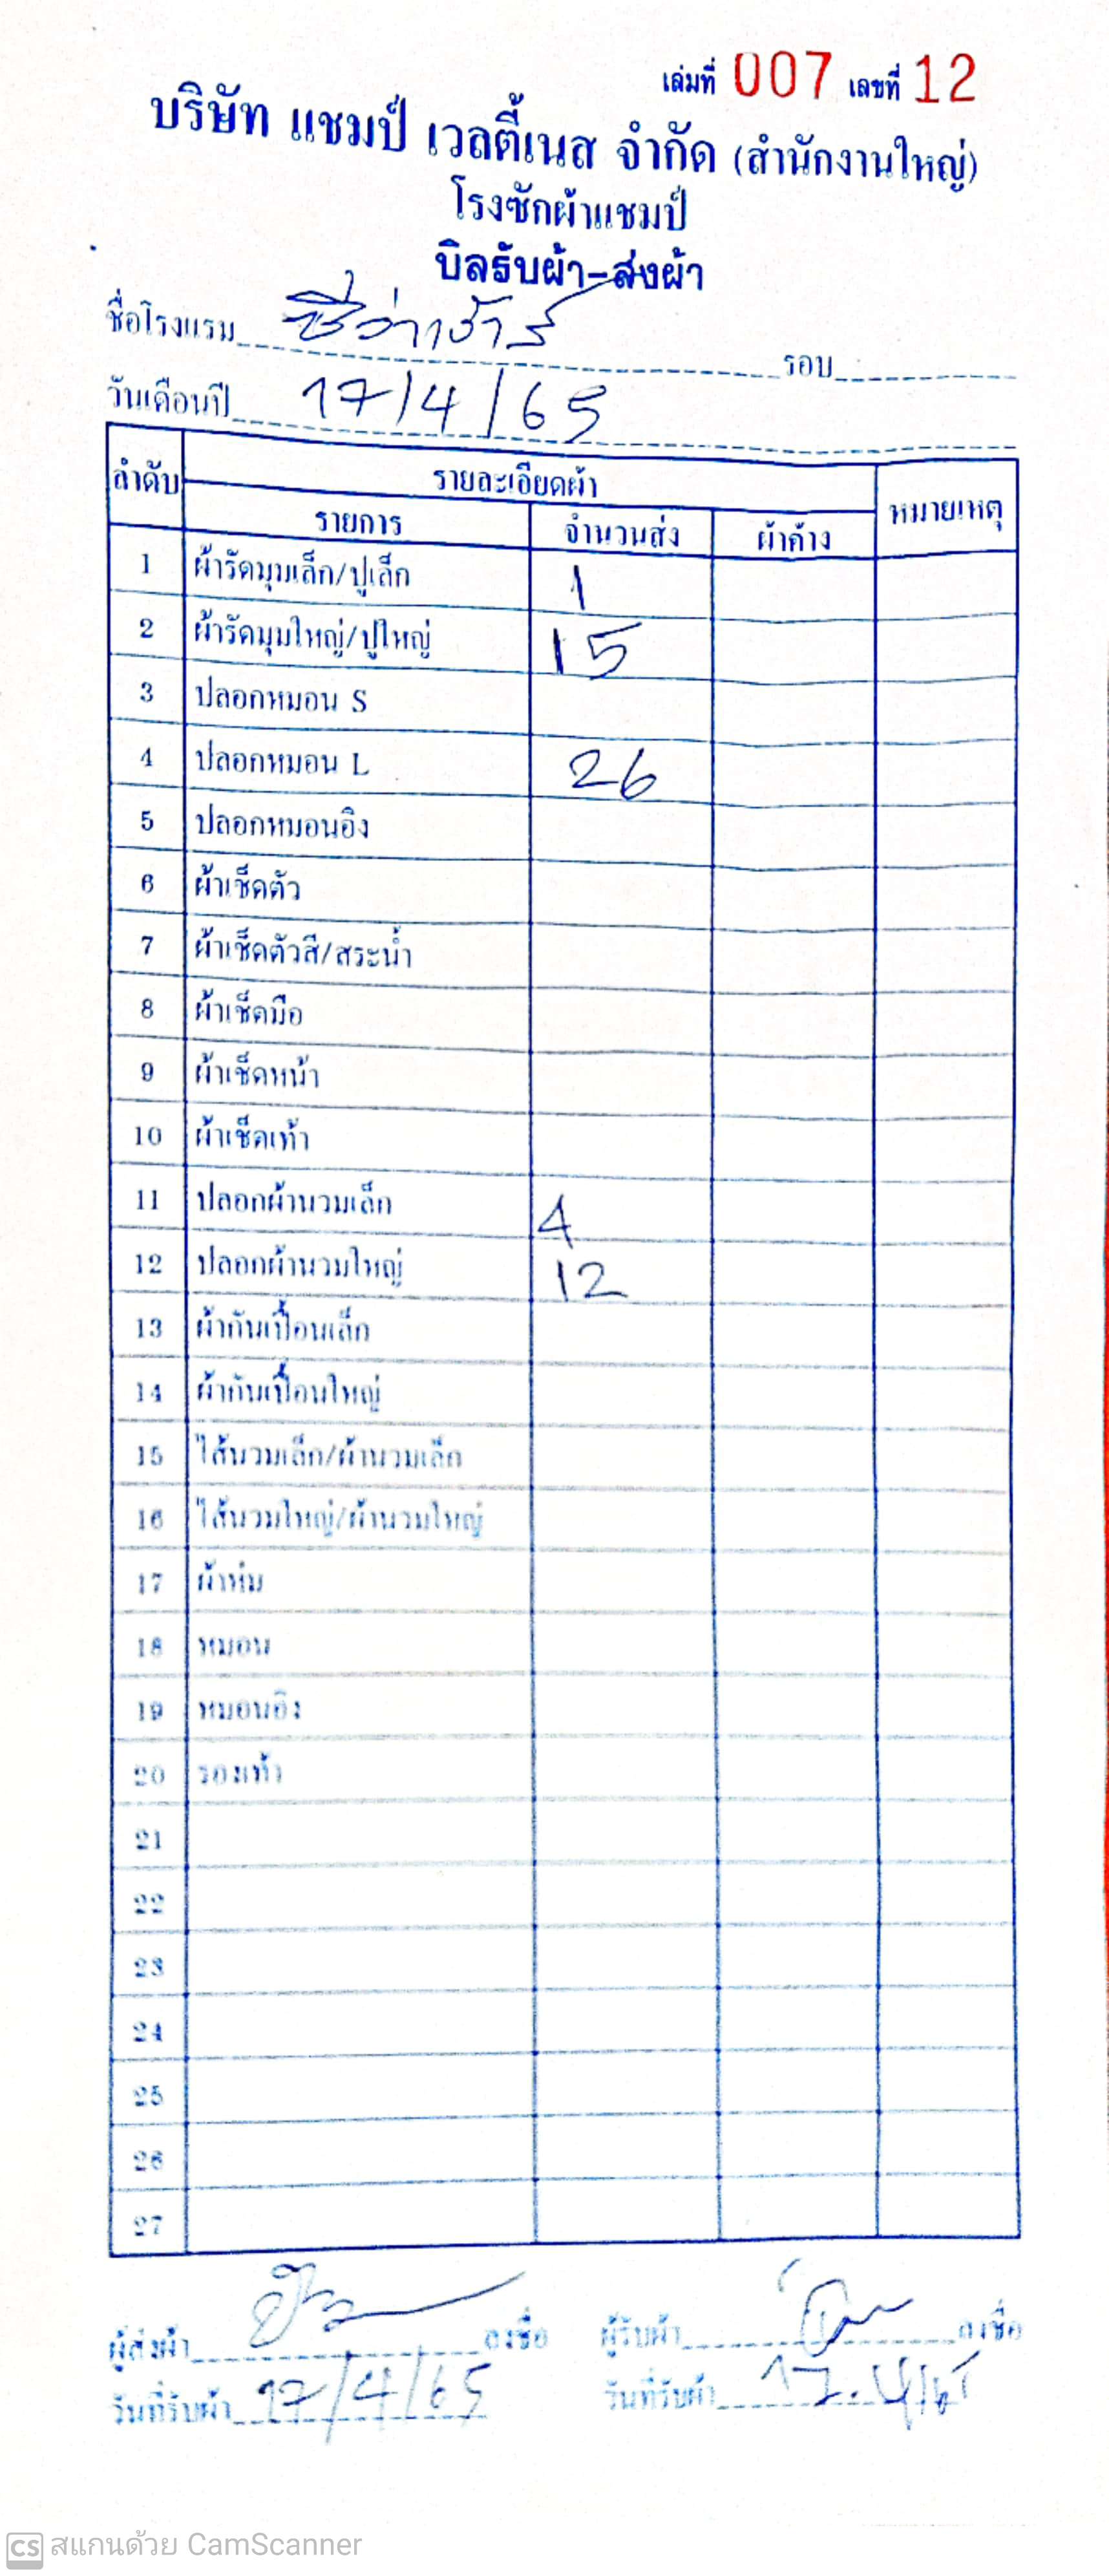 เล่มที่ 007 เลขที่ 12
บริษัท แชมป์ เวลตี้เนส จำกัด (สำนักงานใหญ่)
โรงซักผ้าแชมป์
บิลรับผ้า-ส่งผ้า
ชื่อโรงแรม รอบ
วันเดือนปี 17/4/65
ลำดับ รายละเอียดผ้า หมายเหตุ
รายการ จำนวนส่ง ผ้าค้าง
1 ผ้ารัดมุมเล็ก/ปูเล็ก 1
2 ผ้ารัดมุมใหญ่/ปูใหญ่ 15
3 ปลอกหมอน S
4 ปลอกหมอน L 26
5 ปลอกหมอนอิง
6 ผ้าเช็ดตัว
7 ผ้าเช็ดตัวสี/สระน้ำ
8 ผ้าเช็ดมือ
9 ผ้าเช็ดหน้า
10 ผ้าเช็ดเท้า
11 ปลอกผ้านวมเล็ก 4
12 ปลอกผ้านวมใหญ่ 12
13 ผ้ากันเปื้อนเล็ก
14 ผ้ากันเปื้อนใหญ่
15 ไส้นวมเล็ก/ผ้านวมเล็ก
16 ไส้นวมใหญ่/ผ้านวมใหญ่
17 ผ้าห่ม
18 หมอน
19 หมอนอิง
20 รองเท้า
21
22
23
24
25
26
27
ผู้ส่งผ้า ลงชื่อ ผู้รับผ้า ลงชื่อ
วันที่รับผ้า 17/4/65 วันที่รับผ้า 17.4/65
CS สแกนด้วย CamScanner